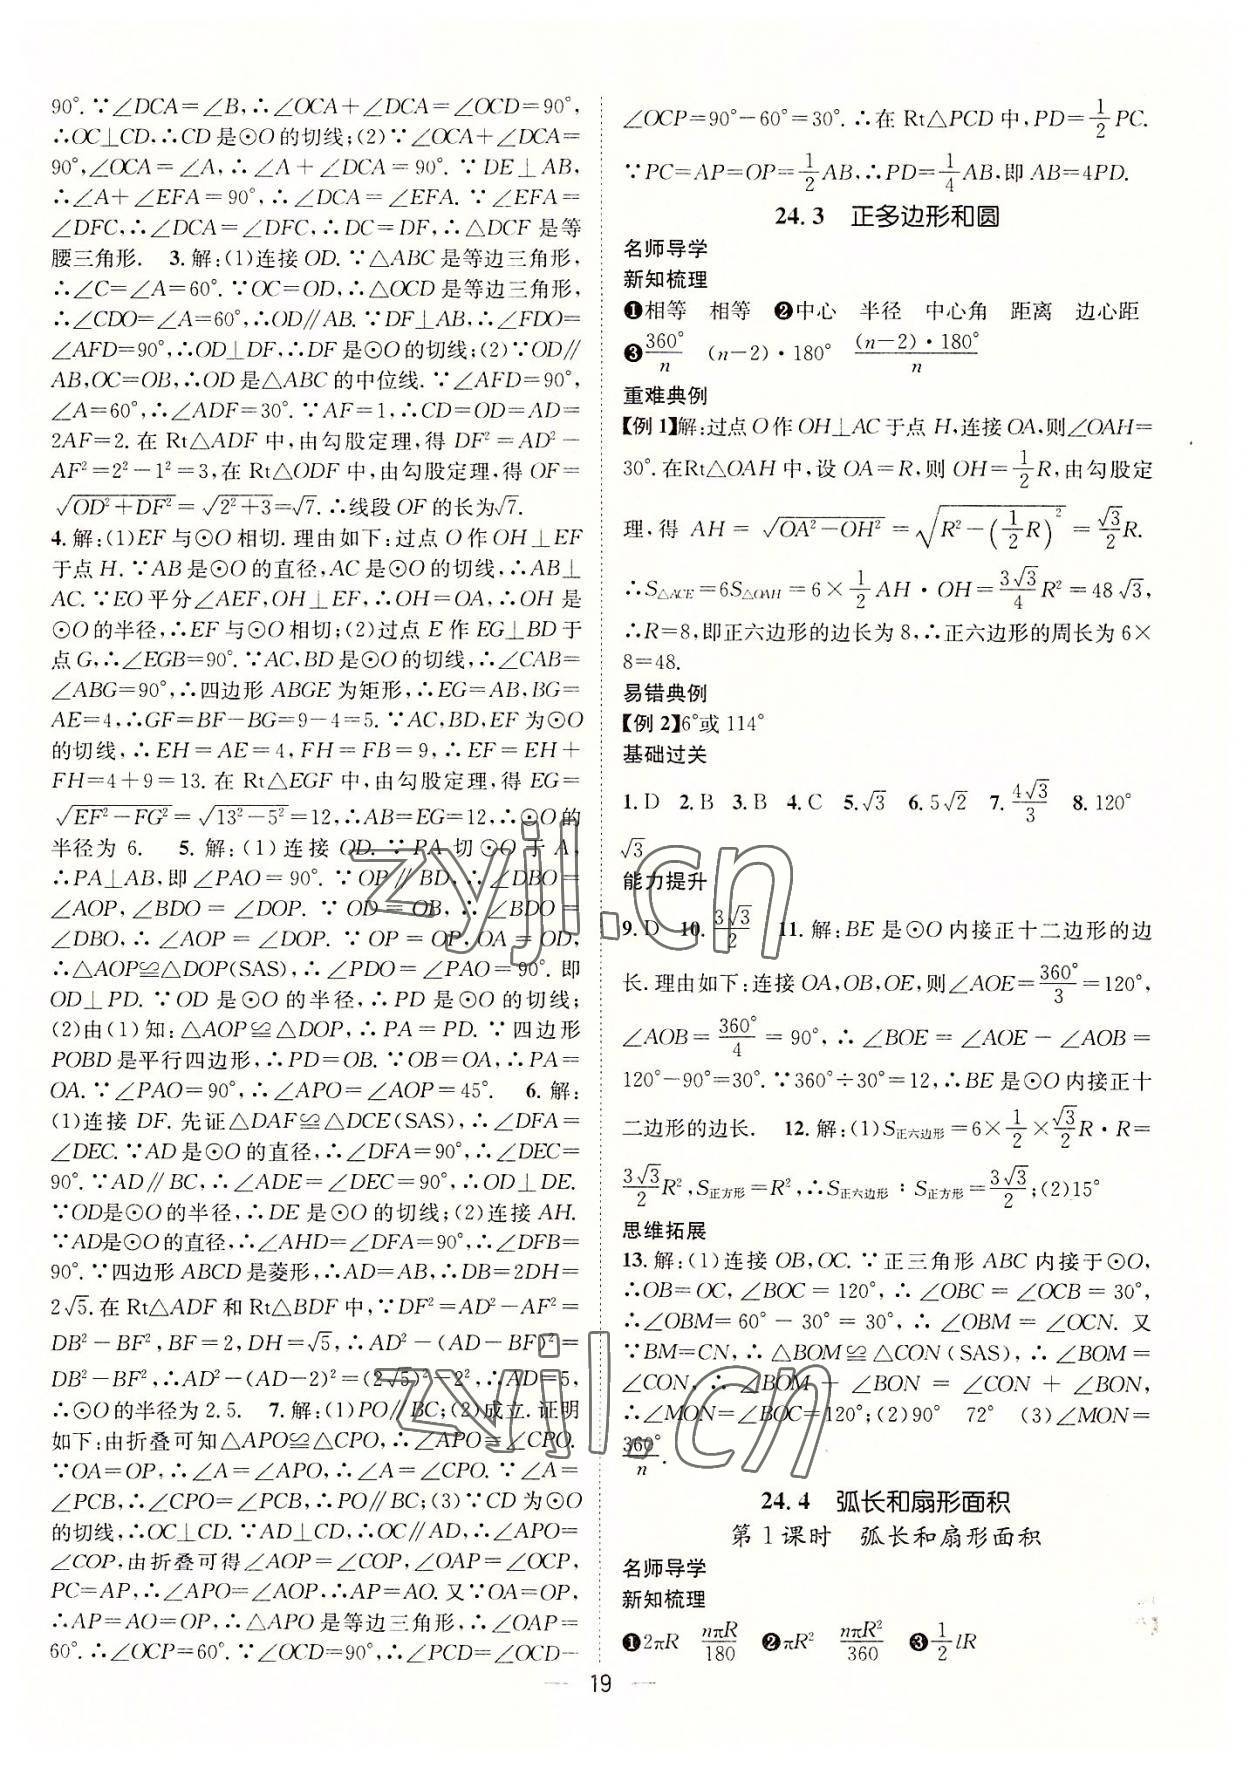 90°.∵∠DCA=∠B,∴∠OCA+∠DCA=∠OCD=90°,
∴OC⊥CD,∴CD是⊙O的切线;(2)∵∠OCA+∠DCA=
90°,∠OCA=∠A,∴∠A+∠DCA=90°.∵DE⊥AB,
∴∠A+∠EFA=90°,∴∠DCA=∠EFA.∵∠EFA=
∠DFC,∴∠DCA=∠DFC,∴DC=DF,∴△DCF是等
腰三角形. 3.解:(1)连接OD.∵△ABC是等边三角形,
∴∠C=∠A=60°.∵OC=OD,∴△OCD是等边三角形,
∴∠CDO=∠A=60°,∴OD∥AB.∵DF⊥AB,∴∠FDO=
∠AFD=90°,∴OD⊥DF,∴DF是⊙O的切线;(2)∵OD∥
AB,OC=OB,∴OD是△ABC的中位线.∵∠AFD=90°,
∠A=60°,∴∠ADF=30°.∵AF=1,∴CD=OD=AD=
2AF=2.在Rt△ADF中,由勾股定理,得DF²=AD²-
AF²=2²-1²=3,在Rt△ODF中,由勾股定理,得OF=
√(OD²+DF²)=√(2²+3)=√7.∴线段OF的长为√7.
4.解:(1)EF与⊙O相切.理由如下:过点O作OH⊥EF
于点H.∵AB是⊙O的直径,AC是⊙O的切线,∴AB⊥
AC.∵EO平分∠AEF,OH⊥EF,∴OH=OA,∴OH是
⊙O的半径,∴EF与⊙O相切;(2)过点E作EG⊥BD于
点G,∴∠EGB=90°.∵AC,BD是⊙O的切线,∴∠CAB=
∠ABG=90°,∴四边形ABGE为矩形,∴EG=AB,BG=
AE=4,∴GF=BF-BG=9-4=5.∵AC,BD,EF为⊙O
的切线,∴EH=AE=4,FH=FB=9,∴EF=EH+
FH=4+9=13.在Rt△EGF中,由勾股定理,得EG=
√(EF²-FG²)=√(13²-5²)=12,∴AB=EG=12,∴⊙O的
半径为6. 5.解:(1)连接OD.∵PA切⊙O于A,
∴PA⊥AB,即∠PAO=90°.∵OP∥BD,∴∠DBO=
∠AOP,∠BDO=∠DOP.∵OD=OB,∴∠BDO=
∠DBO,∴∠AOP=∠DOP.∵OP=OP,OA=OD,
∴△AOP≌△DOP(SAS),∴∠PDO=∠PAO=90°.即
OD⊥PD.∵OD是⊙O的半径,∴PD是⊙O的切线;
(2)由(1)知:△AOP≌△DOP,∴PA=PD.∵四边形
POBD是平行四边形,∴PD=OB.∵OB=OA,∴PA=
OA.∵∠PAO=90°,∴∠APO=∠AOP=45°. 6.解:
(1)连接DF.先证△DAF≌△DCE(SAS),∴∠DFA=
∠DEC.∵AD是⊙O的直径,∴∠DFA=90°,∴∠DEC=
90°.∵AD∥BC,∴∠ADE=∠DEC=90°,∴OD⊥DE.
∵OD是⊙O的半径,∴DE是⊙O的切线;(2)连接AH.
∵AD是⊙O的直径,∴∠AHD=∠DFA=90°,∴∠DFB=
90°.∵四边形ABCD是菱形,∴AD=AB,∴DB=2DH=
2√5.在Rt△ADF和Rt△BDF中,∵DF²=AD²-AF²=
DB²-BF²,BF=2,DH=√5,∴AD²-(AD-BF)²=
DB²-BF²,∴AD²-(AD-2)²=(2√5)²-2²,∴AD=5,
∴⊙O的半径为2.5. 7.解:(1)PO∥BC;(2)成立.证明
如下:由折叠可知△APO≌△CPO,∴∠APO=∠CPO.
∵OA=OP,∴∠A=∠APO,∴∠A=∠CPO.∵∠A=
∠PCB,∴∠CPO=∠PCB,∴PO∥BC;(3)∵CD为⊙O
的切线,∴OC⊥CD.∵AD⊥CD,∴OC∥AD,∴∠APO=
∠COP,由折叠可得∠AOP=∠COP,∠OAP=∠OCP,
PC=AP,∴∠APO=∠AOP.∴AP=AO.又∵OA=OP,
∴AP=AO=OP,∴△APO是等边三角形,∴∠OAP=
60°.∴∠OCP=60°.∵∠OCD=90°,∴∠PCD=∠OCD-
∠OCP=90°-60°=30°.∴在Rt△PCD中,PD=1/2 PC.
∵PC=AP=OP=1/2 AB,∴PD=1/4 AB,即AB=4PD.
24.3 正多边形和圆
名师导学
新知梳理
❶相等 相等 ❷中心 半径 中心角 距离 边心距
❸360°/n (n-2)·180° (n-2)·180°/n
重难典例
【例1】解:过点O作OH⊥AC于点H,连接OA,则∠OAH=
30°.在Rt△OAH中,设OA=R,则OH=1/2 R,由勾股定
理,得AH=√(OA²-OH²)=√(R²-(1/2 R)²)=√3/2 R.
∴S△ACE=6S△OAH=6×1/2 AH·OH=3√3/4 R²=48√3,
∴R=8,即正六边形的边长为8,∴正六边形的周长为6×
8=48.
易错典例
【例2】6°或114°
基础过关
1.D 2.B 3.B 4.C 5.√3 6.5√2 7.4√3/3 8.120°
√3
能力提升
9.D 10.3√3/2 11.解:BE是⊙O内接正十二边形的边
长.理由如下:连接OA,OB,OE,则∠AOE=360°/3=120°,
∠AOB=360°/4=90°,∴∠BOE=∠AOE-∠AOB=
120°-90°=30°.∵360°÷30°=12,∴BE是⊙O内接正十
二边形的边长. 12.解:(1)S正六边形=6×1/2×√3/2 R·R=
3√3/2 R²,S正方形=R²,∴S正六边形:S正方形=3√3/2;(2)15°
思维拓展
13.解:(1)连接OB,OC.∵正三角形ABC内接于⊙O,
∴OB=OC,∠BOC=120°,∴∠OBC=∠OCB=30°,
∴∠OBM=60°-30°=30°,∴∠OBM=∠OCN.又
∵BM=CN,∴△BOM≌△CON(SAS),∴∠BOM=
∠CON,∴∠BOM+∠BON=∠CON+∠BON,
∴∠MON=∠BOC=120°;(2)90° 72° (3)∠MON=
360°/n.
24.4 弧长和扇形面积
第1课时 弧长和扇形面积
名师导学
新知梳理
❶2πR nπR/180 ❷πR² nπR²/360 ❸1/2 lR
19
zyjl.cn
zyjl.cn